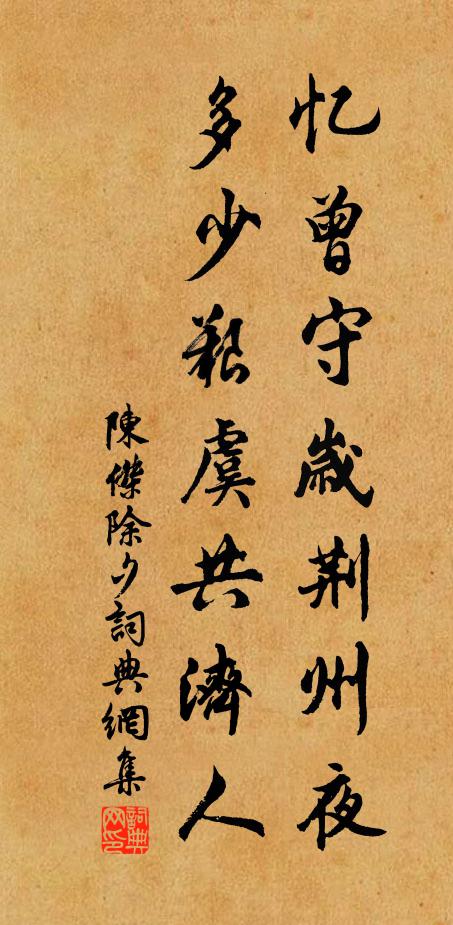 忆曾守歲荆州夜
多少艱虞共濟人
陳傑除夕詞典網集
詞典网印